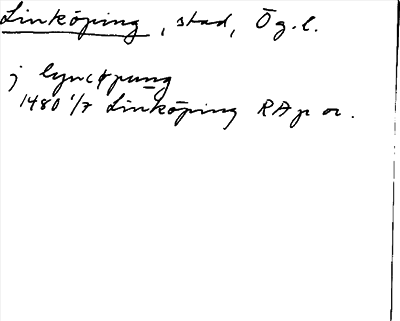 Linköping, stad, Ög.l.
j lyncøpung
1480 1/7 Linköping RAp or.